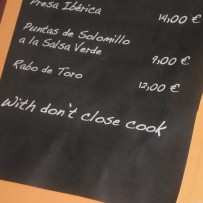 Presa Ibérica
14,00 €
Puntas de Solomillo
a la Salsa Verde
9,00 €
Rabo de Toro
12,00 €
With don't close cook